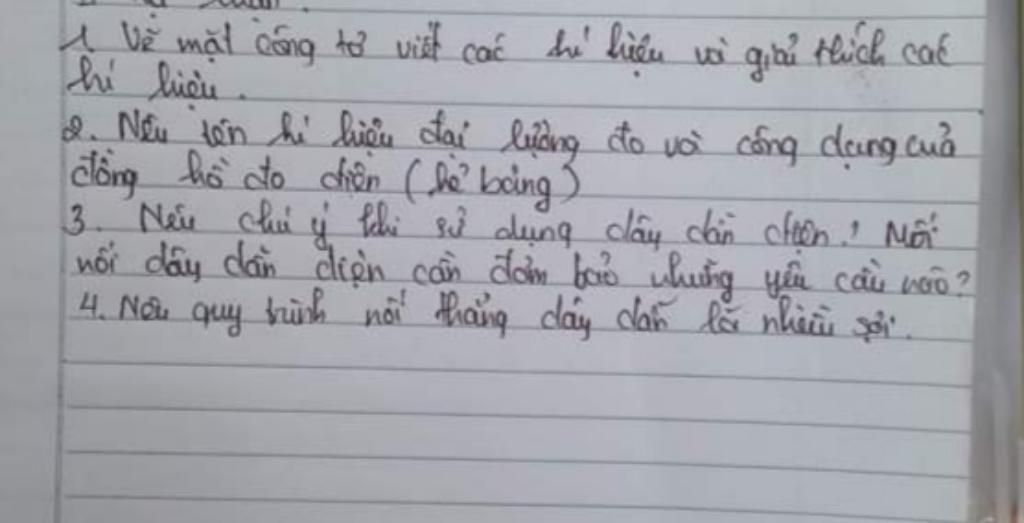 1. Vẽ mặt công tơ viết các kí hiệu và giải thích các
kí hiệu.
2. Nêu tên kí hiệu đại lượng đo và công dụng của
đồng hồ đo điện (kẻ bảng)
3. Nêu chú ý khi sử dụng dây dẫn điện? Mối
nối dây dẫn điện cần đảm bảo những yêu cầu nào?
4. Nêu quy trình nối thẳng dây dẫn lõi nhiều sợi.